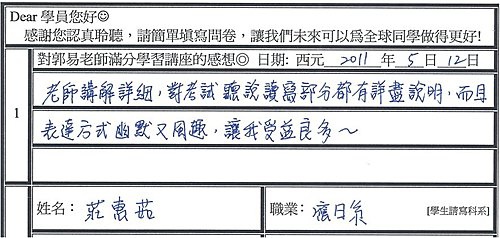 Dear 學員您好☺
感謝您認真聆聽，請簡單填寫問卷，讓我們未來可以為全球同學做得更好!
對郭易老師滿分學習講座的感想◎ 日期: 西元 2011 年 5 月 12 日
1
老師講解詳細，對考試聽說讀寫部分都有詳盡說明，而且
表達方式幽默又風趣，讓我受益良多～
姓名： 莊惠茹
職業： 應日系 [學生請寫科系]